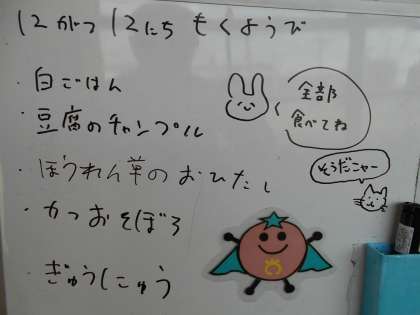 12がつ12にち もくようび
・白ごはん
・豆腐のチャンプル
・ほうれん草のおひたし
・かつおそぼろ
・ぎゅうにゅう
全部
食べてね
そうだニャー